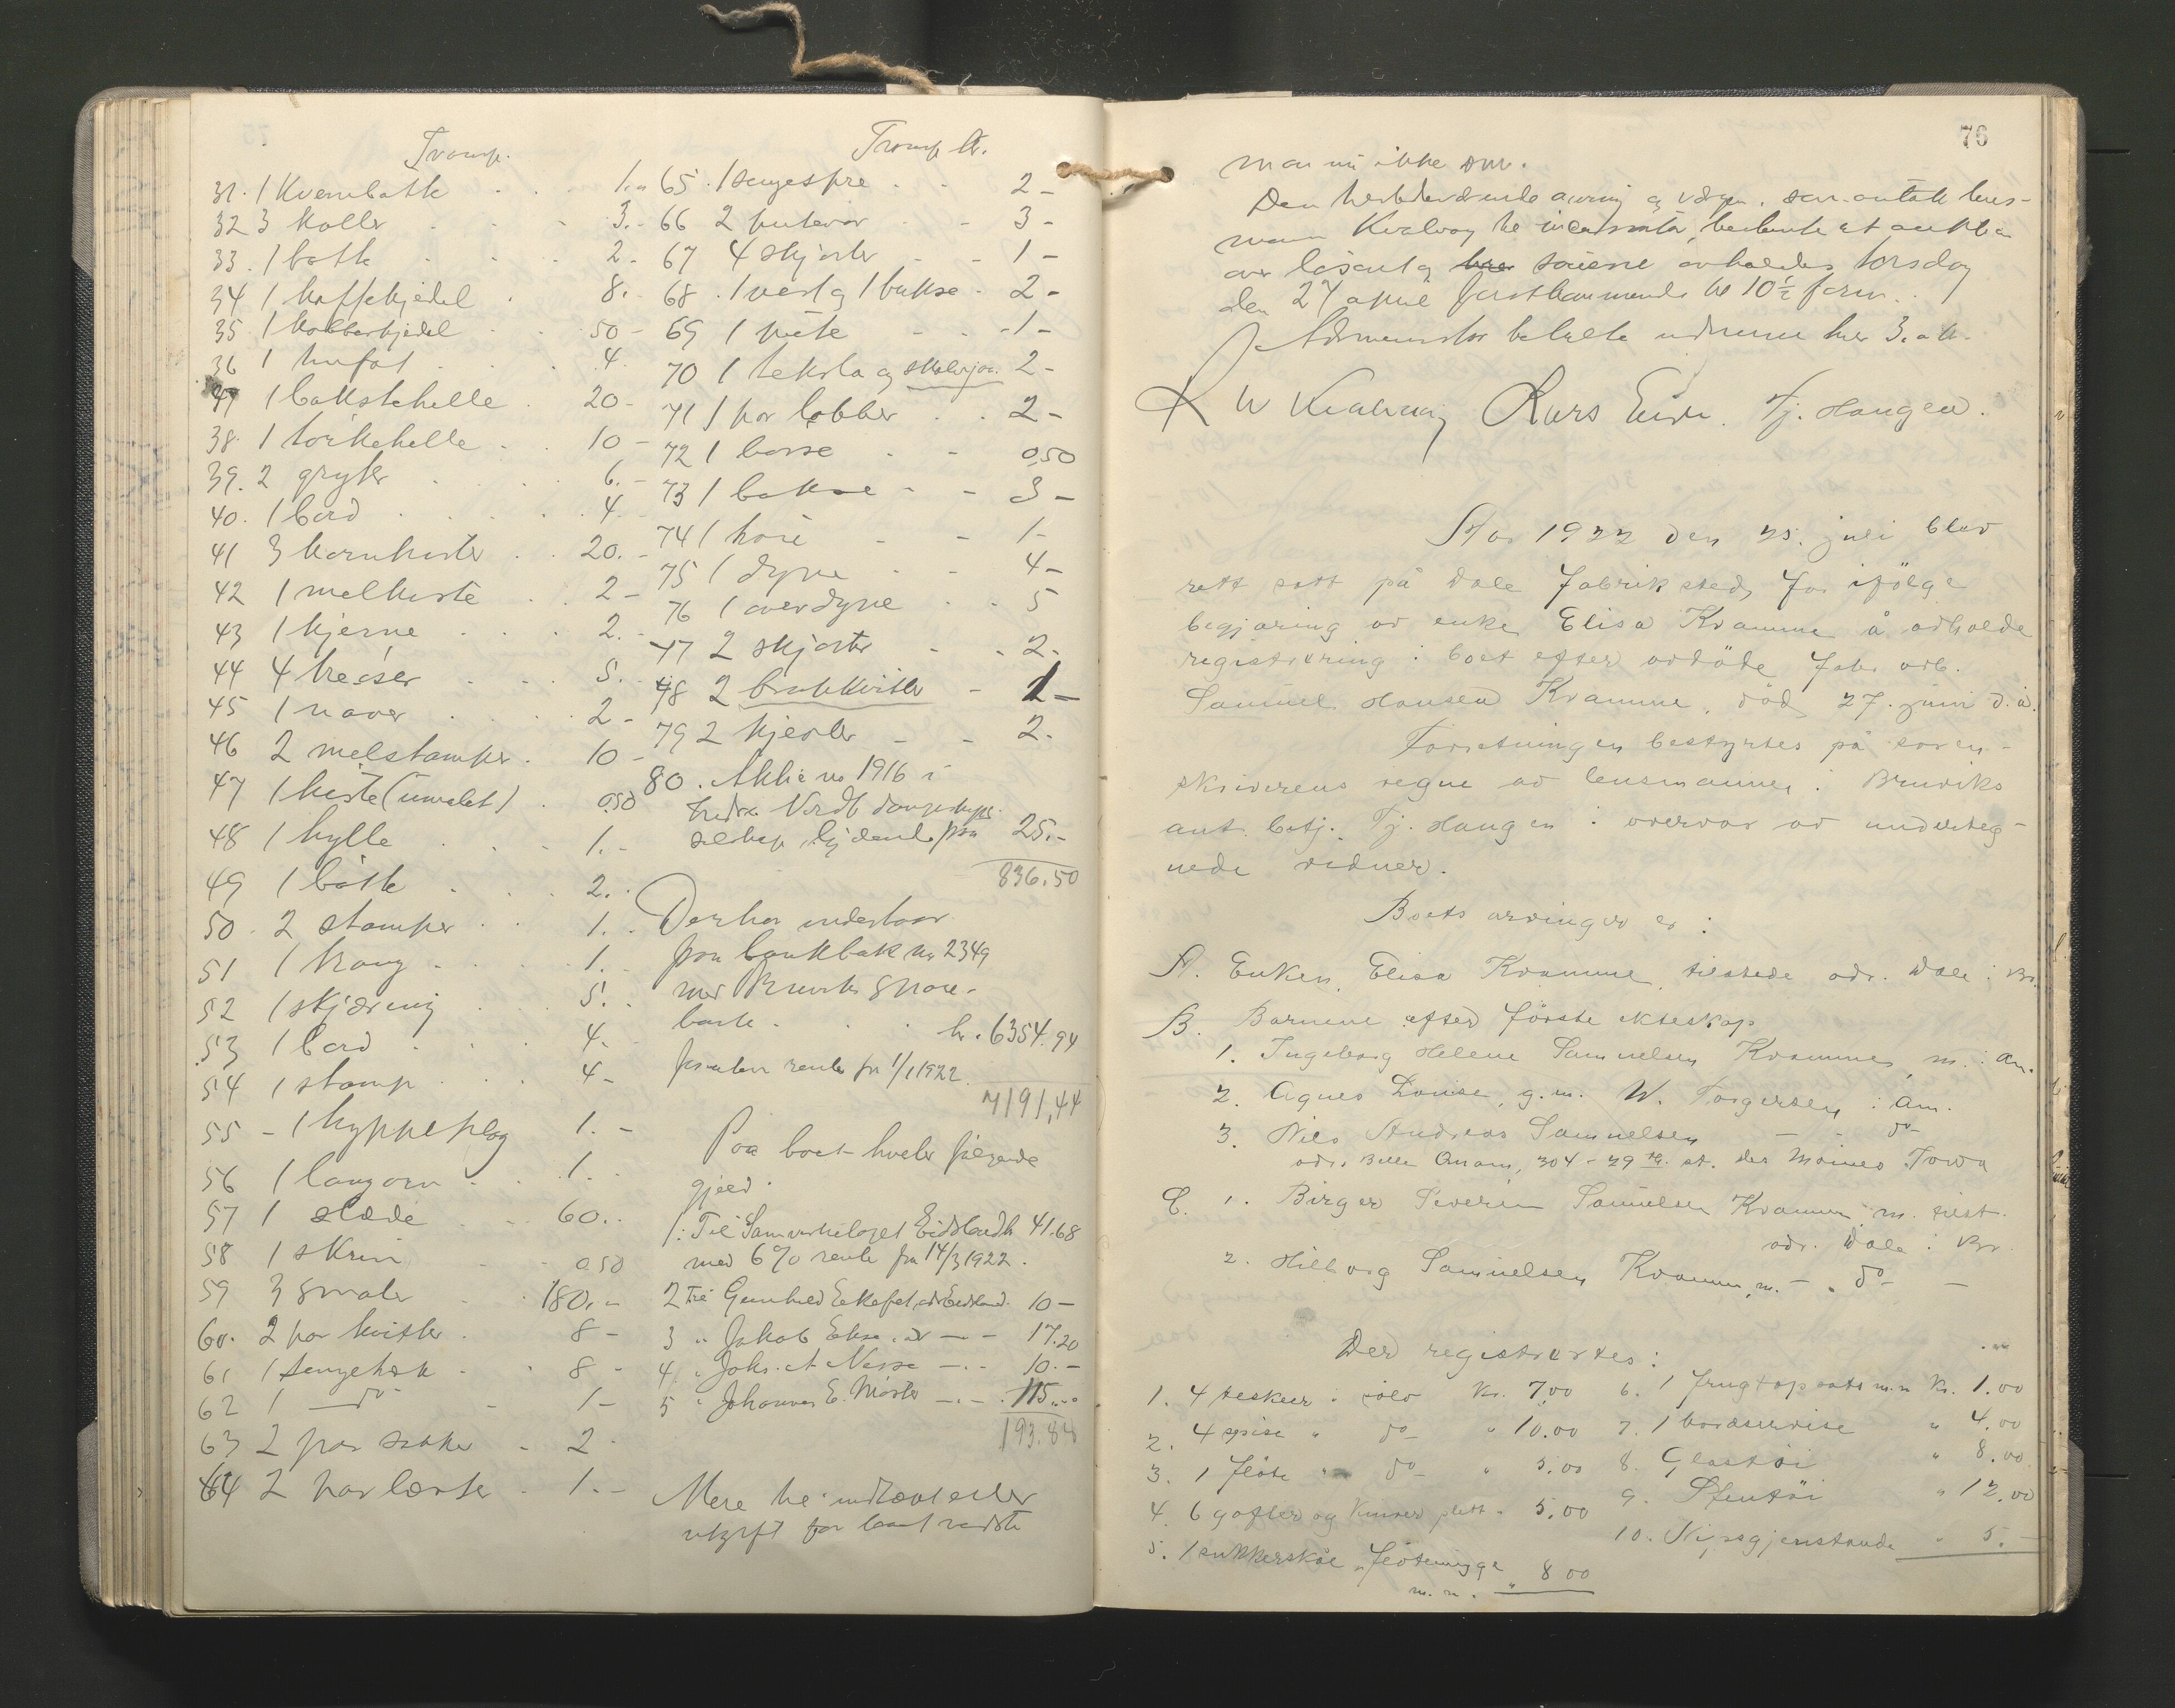 Transp.
31. 1 Kvernbøtte . . 1.-
32 3 Koller . . 3.-
33. 1 bøtte . . 2.
34 1 kaffekjedel . 8.
35. 1 Kobberkjedel . 50-
36 1 . . 4.
37 1 bakstehelle . 20-
38. 1 törkehelle . . 10-
39. 2 gryter . . 6.-
40. 1 bord . . 4.
41 3 kornkister . . 20.-
42 1 melkiste . . 2-
43 1 kjerne . . 2.-
44 4 . . 5.
45 1 naver . . 2-
46 2 melstamper . 10-
47 1 kiste (umalet) . 0.50
48 1 hylle . . 1.-
49 1 bøtte . . 2.
50. 2 stamper . . 1.
51 1 . . 1.
52 1 skjæring . . 5.
53 1 bord . . 4.
54 1 stamp . . 4-
55 - 1 hyppeplog 1.-
56 1 langorv . . 1.
57 1 slæde . . 60.-
58 1 skrin . . 0.50
59 3 smaler . . 180.-
60. 2 par kvitler . 8-
61 1 sengetæk . . 8-
62 1 do - 1-
63 2 par sokker - 2-
64 2 par læster . 1.-
Transp kr.
65. 1 sengespre . - 2-
66 2 putevar . - 3-
67 4 skjorter . - 1-
68. 1 vest og 1 bukse - 2-
69 1 . - -1-
70 1 teksla og 2-
71 1 par labber . . 2-
72 1 . - 0.50
73 1 bukse - - 3-
74 1 - - 1-
75 1 dyne - - 4-
76 1 overdyne . . 5
77 2 skjorter - . 2.
78 2 - 1-
79 2 kjoler - - 2.
80. Aktie no 1916 i
Nordh.
selskap, lydende paa 25.-
836.50
Derhos indestaar
paa bankbok nr 2349
ved Bruviks spare-
bank . . kr. 6354.94
foruten renter fra 1/1 1922.
7191,44
Paa boet hviler følgende
gjeld.
1. Til Samvirkelaget Eidsland kr 41.68
med 6% rente fra 14/3 1922.
2 Til Gunhild , adr Eidsland. 10-
3 " Jakob , adr - - 17.20
4 " Johs. A Nesse - . - 10.-
5 " Johannes E. Mørter - . - 115.-
193.88
Mere til indtægt eller
utgift for boet vidste
76
man nu ikke om.
Den herboende arving og , som antok lens-
mann Kvalvåg til , bestemte at auktion
over løsöret og avholdes torsdag
den 27 april førstkommende kl 10½ form.
betalte vidnerne hver 3. kr.
K W Kvalvåg Lars Eide. Tj. Haugen.
År 1922 den 25. juli blev
rett satt på Dale Fabriksted, for ifölge
begjæring av enke Elisa Kvamme å avholde
registrering i boet efter avdöde fabr. arb.
Samuel Hansen Kvamme, död 27. juni d.å.
Forretningen bestyrtes på soren-
skriverens vegne av lensmannen i Bruviks
aut. betj. Tj. Haugen i overvær av underteg-
nede vidner.
Boets arvinger er:
A. Enken, Elisa Kvamme, tilstede adr. Dale i Br.
B. Barnene efter förste ekteskap
1. Ingeborg Helene Samuelsen Kvamme, m. i Am.
2. Agnes Lovise, g.m. W. Torgersen i Am.
3. Nils Andreas Samuelsen - - do
adr. Belle Anam, 304 - 29 th. st. des Moines Iowa
C. 1. Birger Severin Samuelsen Kvamme, m. tilst.
adr. Dale i Br.
2. Hilborg Samuelsen Kvamme, m. - . do -
Der registrertes:
1. 4 teskeer i sölv Kr. 7,00
2. 4 spise " do " 10.00
3. 1 flöte " do " 5,00
4. 6 gafler og kniver plett " 5,00
5. 1 sukkerskål, flötemugge
m. m. " 8 00
6. 1 frugtopsats m.m Kr. 1.00
7. 1 bordservise " 4.00
8. Glastöi " 8.00
9. Stentöi " 12.00
10. Nipsgjenstande " 5.-